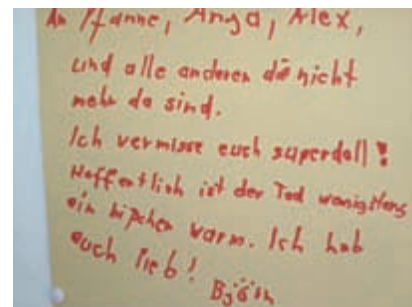 An Hanne, Anya, Alex,
und alle anderen die nicht
mehr da sind.
Ich vermisse euch superdoll!
Hoffentlich ist der Tod wenigstens
ein bißchen warm. Ich hab
euch lieb!
Björn